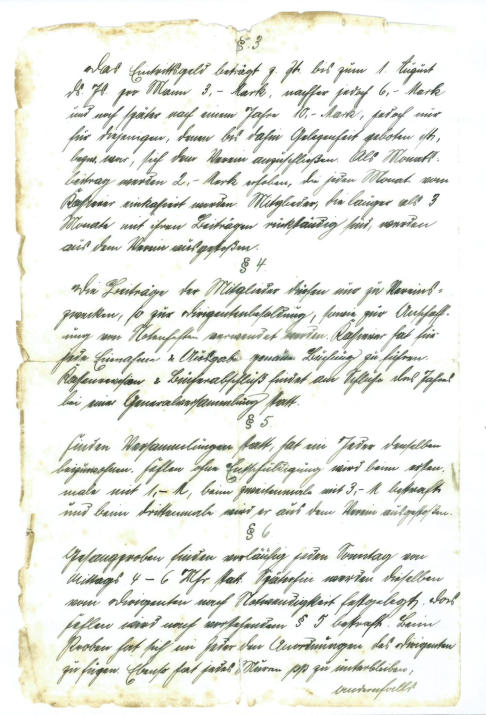 § 3
Das Eintrittsgeld beträgt z. Zt. bis zum 1. August
ds. Js. pro Mann 3,- Mark, nachher jedoch 6,- Mark
und noch später nach einem Jahre 10.- Mark, jedoch nur
für diejenigen, denen bis dahin Gelegenheit geboten ist,
bezw. war, sich dem Verein anzuschließen. Als Monats-
beitrag werden 2,- Mark erhoben, die jeden Monat vom
Kassierer einkassiert werden. Mitglieder, die länger als 3
Monate mit ihren Beiträgen rückständig sind, werden
aus dem Verein ausgestoßen.
§ 4
Die Beiträge der Mitglieder dürfen nur zu Vereins-
zwecken, so zur Dirigentenbesoldung, sowie zur Anschaff-
ung von Notenheften verwendet werden. Kassierer hat für
jede Einnahme & Ausgabe genaue Buchung zu führen.
Kassenrevision & Bücherabschluß findet am Schluße des Jahres
bei einer Generalversammlung statt.
§ 5
Finden Versammlungen statt, hat ein Jeder denselben
beizuwohnen. Fehlen ohne Entschuldigung wird beim ersten-
male mit 1,- M, beim zweitenmale mit 3,- M bestraft
und beim drittenmale wird er aus dem Verein ausgestoßen.
§ 6
Gesangproben finden vorläufig jeden Sonntag von
Mittags 4 - 6 Uhr statt. Späterhin werden dieselben
vom Dirigenten nach Notwendigkeit festgelegt. Das
Fehlen wird nach vorstehendem § 5 bestraft. Beim
Proben hat sich ein Jeder den Anordnungen des Dirigenten
zu fügen. Ebenso hat jedes zu unterbleiben,
andernfalls